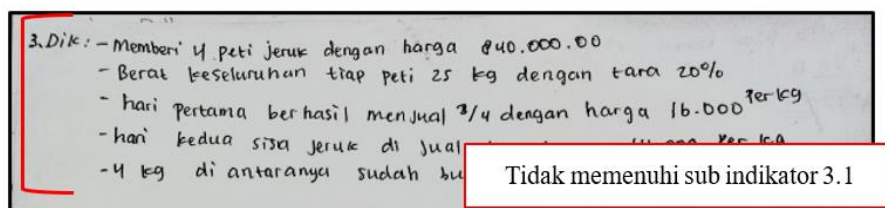 3. Dik: - Memberi 4 peti jeruk dengan harga 840.000.00
- Berat keseluruhan tiap peti 25 kg dengan tara 20%
- hari pertama berhasil menjual 3/4 dengan harga 16.000 Per kg
- hari kedua sisa jeruk di jual Per kg
- 4 kg di antaranya sudah bu
Tidak memenuhi sub indikator 3.1